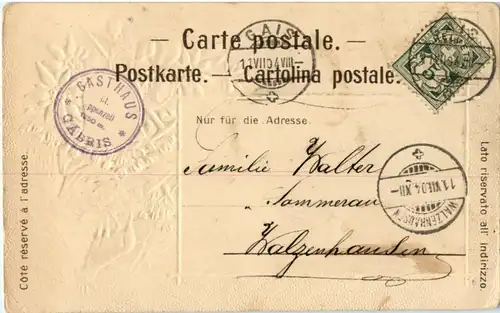 Carte postale.
GAIS
11.VII.04.VIII-
Postkarte. — Cartolina postale.
5
GASTHAUS
GÄBRIS
Nur für die Adresse.
Familie Walter
Sommerau
Walzenhausen
11.VII.04.XII-
WALZENHAUSEN
Côté réservé à l'adresse.
Lato riservato all' indirizzo.